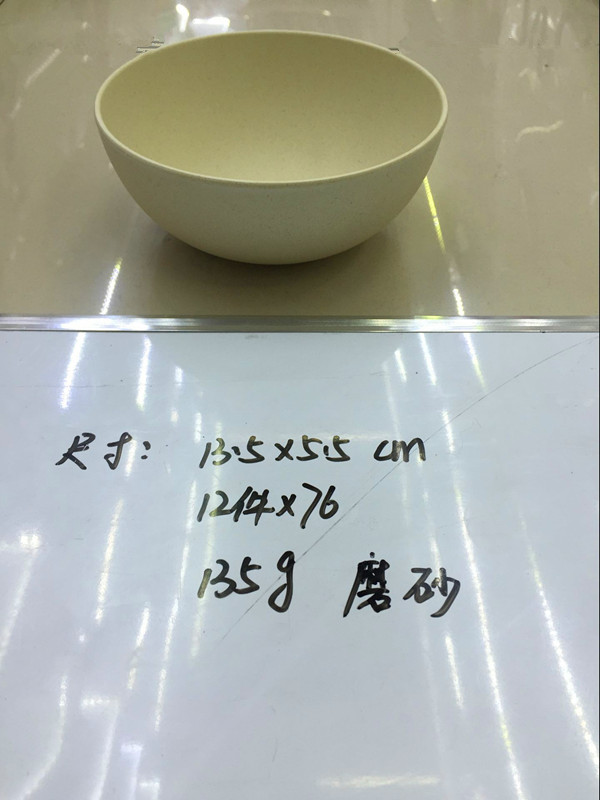 尺寸: 13.5×5.5 cm
12件×76
135g 磨砂